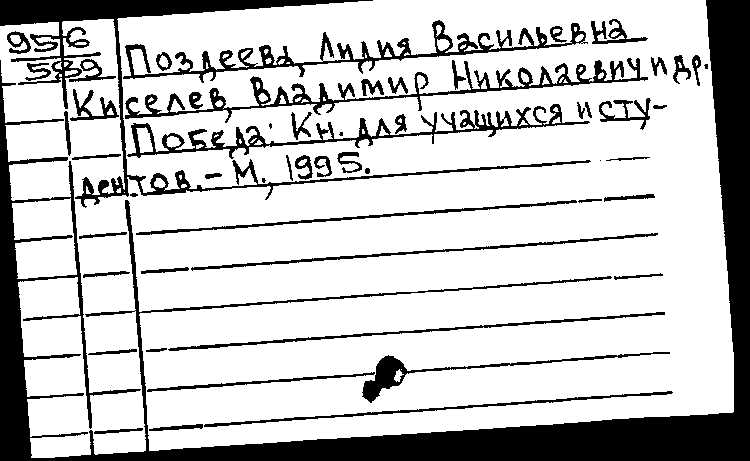 95-6
589
Поздеева, Лидия Васильевна
Киселев, Владимир Николаевич и др.
Победа: Кн. для учащихся и сту-
дентов. - М., 1995.